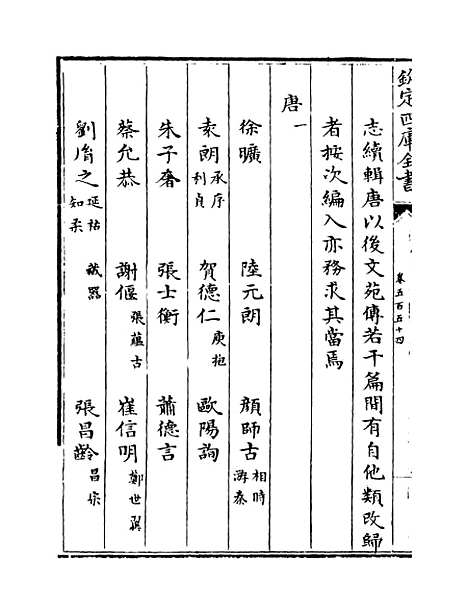 欽定四庫全書
卷五百五十四
志續輯唐以後文苑傳若干篇間有自他類改歸
者按次編入亦務求其當焉
唐一
徐曠 陸元朗 顔師古 相時 游秦
袁朗 承序 利貞 賀德仁 庾抱 歐陽詢
朱子奢 張士衡 蕭德言
蔡允恭 謝偃 張蘊古 崔信明 鄭世翼
劉𦙍之 延祐 知柔 藏器 張昌齡 昌宗